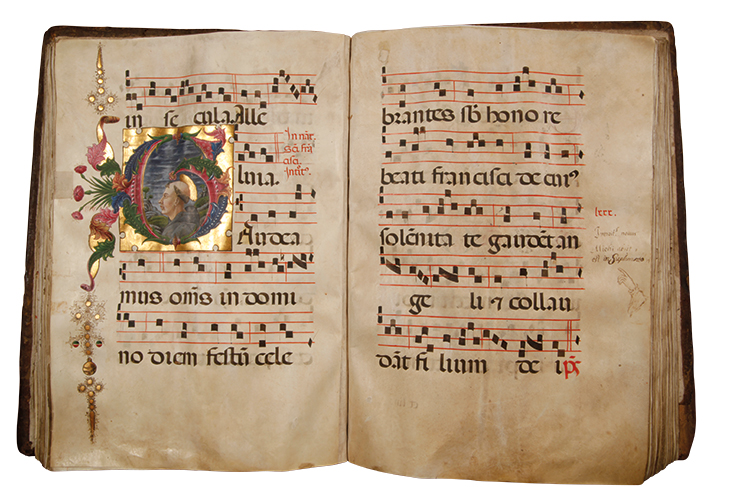 in se cula. Alle
In nat̄.
sc̄i frā
cisci.
Intit̄.
luia.
G Audea
mus om̄s in domi
no diem festū cele
brantes sb̄ hono re
beati francisci de cuiꝰ
solēnita te gaudēt an
ge li ⁊ collau
dāt fi lium de i. p̄s